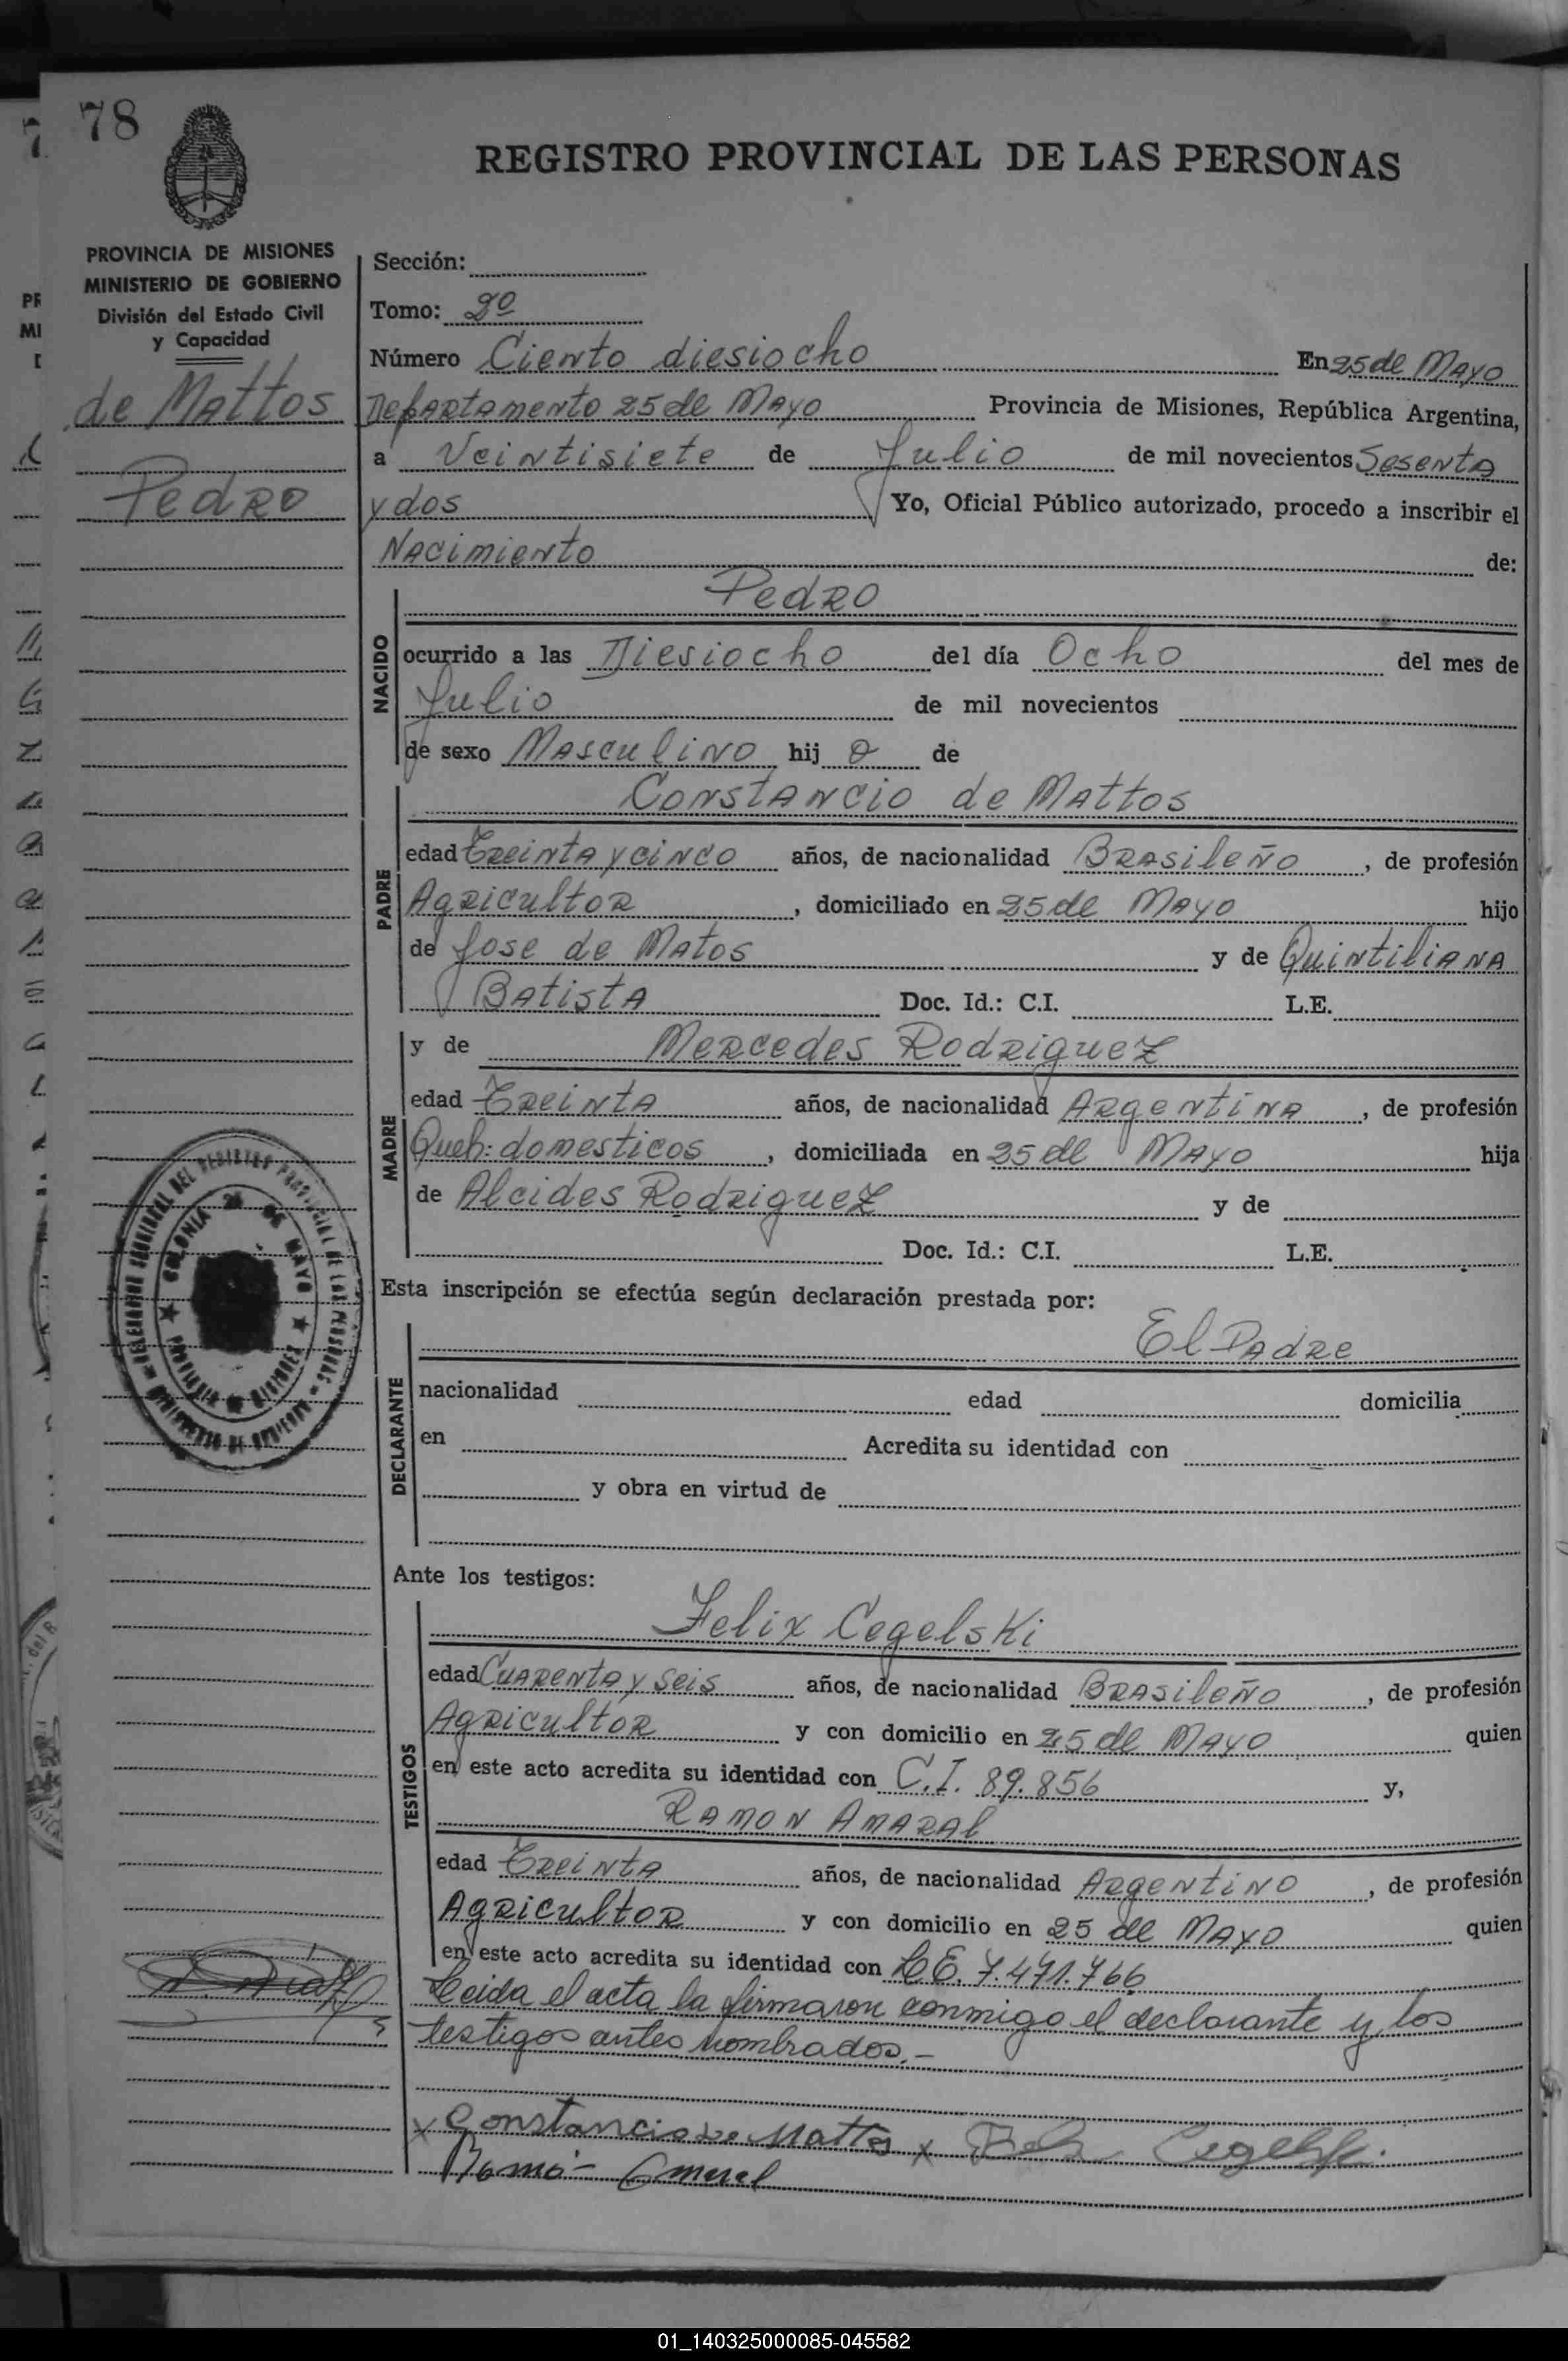 78
REGISTRO PROVINCIAL DE LAS PERSONAS
PROVINCIA DE MISIONES
MINISTERIO DE GOBIERNO
División del Estado Civil
y Capacidad
de Mattos
Pedro
Sección:
Tomo: 2º
Número Ciento diesiocho En 25 de Mayo
Departamento 25 de Mayo Provincia de Misiones, República Argentina,
a Veintisiete de Julio de mil novecientos Sesenta
y dos Yo, Oficial Público autorizado, procedo a inscribir el
Nacimiento de:
NACIDO
Pedro
ocurrido a las Diesiocho del día Ocho del mes de
Julio de mil novecientos
de sexo Masculino hij o de
PADRE
Constancio de Mattos
edad Treinta y cinco años, de nacionalidad Brasileño, de profesión
Agricultor, domiciliado en 25 de Mayo hijo
de Jose de Matos y de Quintiliana
Batista Doc. Id.: C.I. L.E.
MADRE
y de Mercedes Rodriguez
edad Treinta años, de nacionalidad Argentina, de profesión
Queh: domesticos, domiciliada en 25 de Mayo hija
de Alcides Rodriguez y de
Doc. Id.: C.I. L.E.
Esta inscripción se efectúa según declaración prestada por:
DECLARANTE
El Padre
nacionalidad edad domicilia
en Acredita su identidad con
y obra en virtud de
Ante los testigos:
TESTIGOS
Felix Cegelski
edad Cuarenta y seis años, de nacionalidad Brasileño, de profesión
Agricultor y con domicilio en 25 de Mayo quien
en este acto acredita su identidad con C.I. 89.856 y,
Ramon Amaral
edad Treinta años, de nacionalidad Argentino, de profesión
Agricultor y con domicilio en 25 de Mayo quien
en este acto acredita su identidad con L.E. 7.471.766
Leida el acta la firmaron conmigo el declarante y los
testigos antes nombrados.-
x Constancio de Mattos x Cegelski
COLONIA 25 DE MAYO
PROVINCIA DE MISIONES
01_140325000085-045582